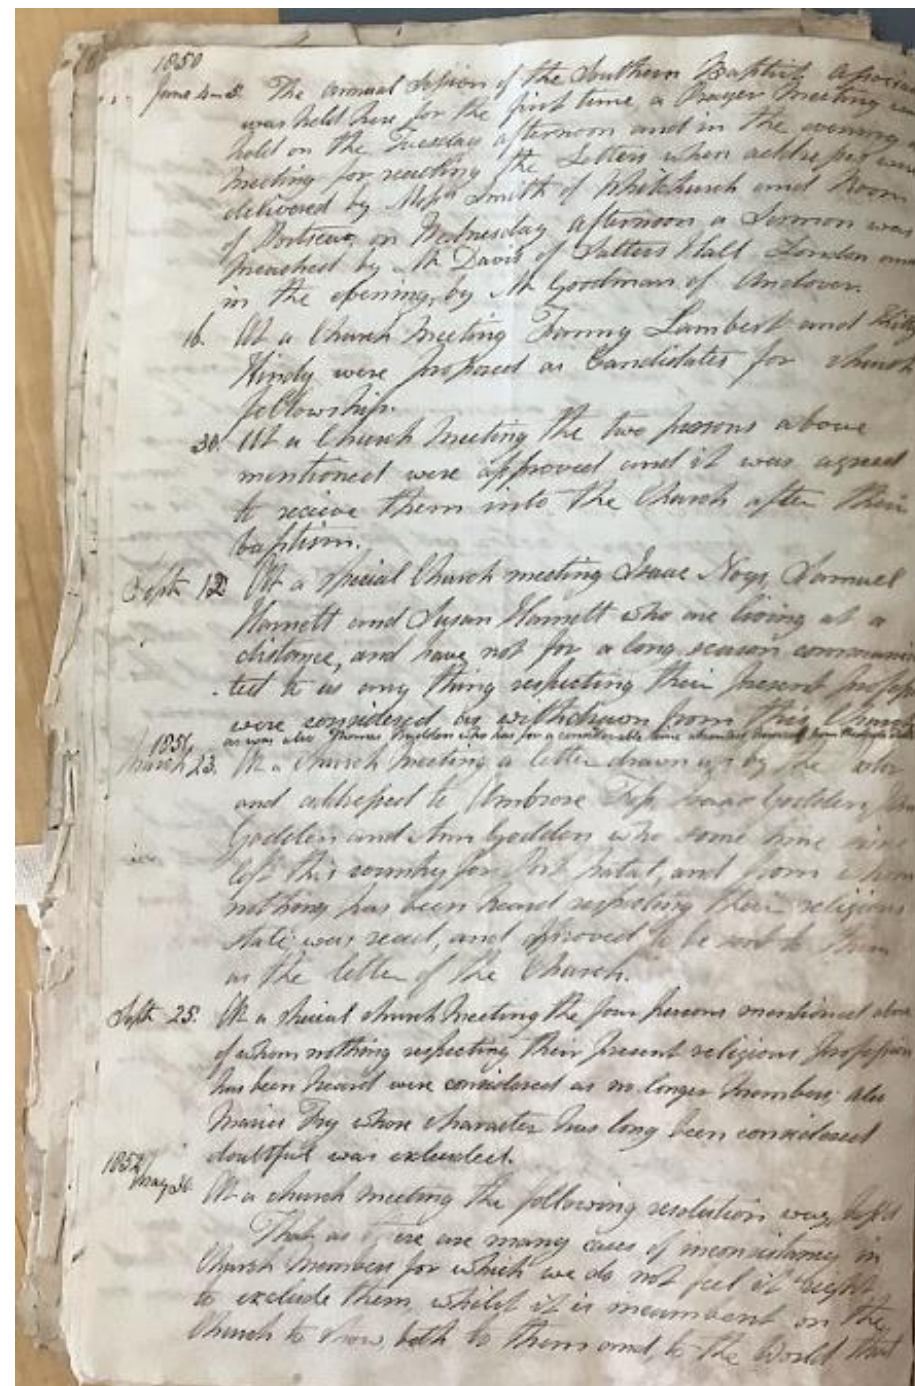 1850
June 4 & 5. The annual Session of the Southern Baptist
was held here for the first time, a Prayer Meeting was
held on the Tuesday afternoon and in the evening a
Meeting for reading the Letters when addresses were
delivered by Messrs Smith of Whitchurch and Room
of Portsea, on Wednesday afternoon a Sermon was
preached by Mr Davis of Salters Hall London and
in the evening, by Mr Goodman of Andover.
16. At a Church Meeting Fanny Lambert and
Hindy were proposed as Candidates for church
fellowship.
30. At a Church Meeting the two persons above
mentioned were approved and it was agreed
to recieve them into the Church after their
baptism.
Septr 12. At a special Church meeting Isaac Noys, Samuel
Harnett and Susan Harnett who are living at a
distance, and have not for a long season communica
ted to us any thing respecting their present profession
were considered as withdrawn from this Church
as was also Thomas who has for a considerable time absented himself from
1851
March 23. At a church meeting a letter drawn up by the
and addressed to Ambrose Isaac Godden,
Godden and Ann Godden who some time since
left this country for Port Natal, and from whom
nothing has been heard respecting their religious
state was read, and approved to be sent to them
as the letter of the Church.
Septr 25. At a special church meeting the four persons mentioned above
of whom nothing respecting their present religious profession
has been heard were considered as no longer members also
Maria Fry whose character has long been considered
doubtful was excluded.
1852
May 30. At a church meeting the following resolution was
That as there are many cases of inconsistency in
Church Members for which we do not feel it right
to exclude them, whilst it is incumbent on the
Church to show both to them and, to the World that